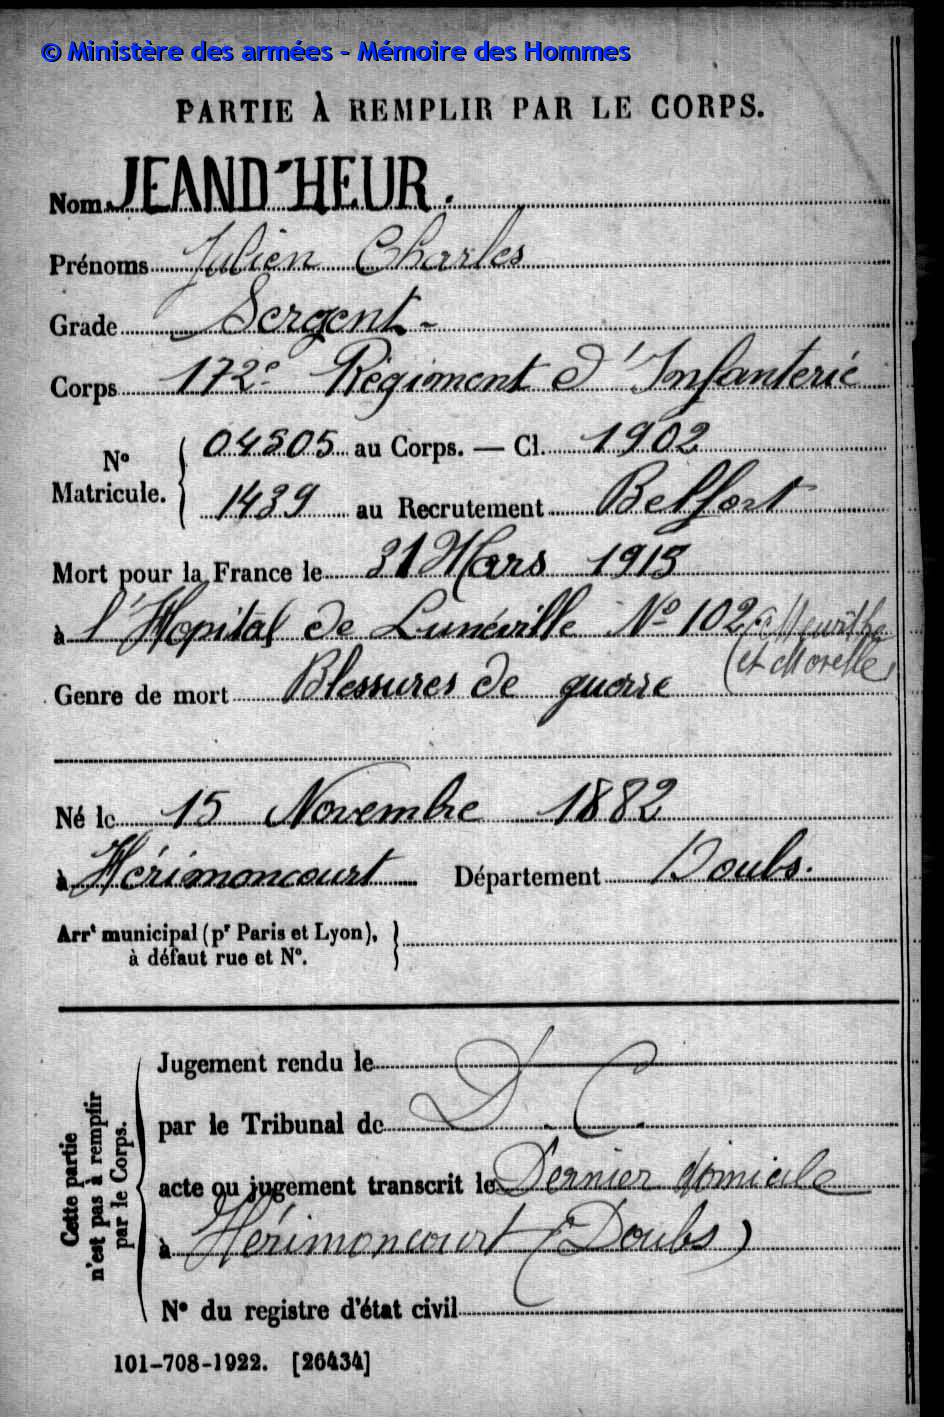 © Ministère des armées - Mémoire des Hommes
PARTIE À REMPLIR PAR LE CORPS.
Nom JEAND'HEUR.
Prénoms Julien Charles
Grade Sergent -
Corps 172e Régiment d'Infanterie
N° Matricule. { 04505 au Corps. — Cl. 1902
1439 au Recrutement Belfort
Mort pour la France le 31 Mars 1915
à l'Hopital de Lunéville N° 102 (Meurthe
et Moselle)
Genre de mort Blessures de guerre
Né le 15 Novembre 1882
à Hérimoncourt Département Doubs.
Arrt municipal (pr Paris et Lyon), }
à défaut rue et N°.
Cette partie
n'est pas à remplir
par le Corps.
Jugement rendu le
par le Tribunal de D. C.
acte ou jugement transcrit le Dernier domicile
à Hérimoncourt (Doubs)
N° du registre d'état civil
101-708-1922. [26434]